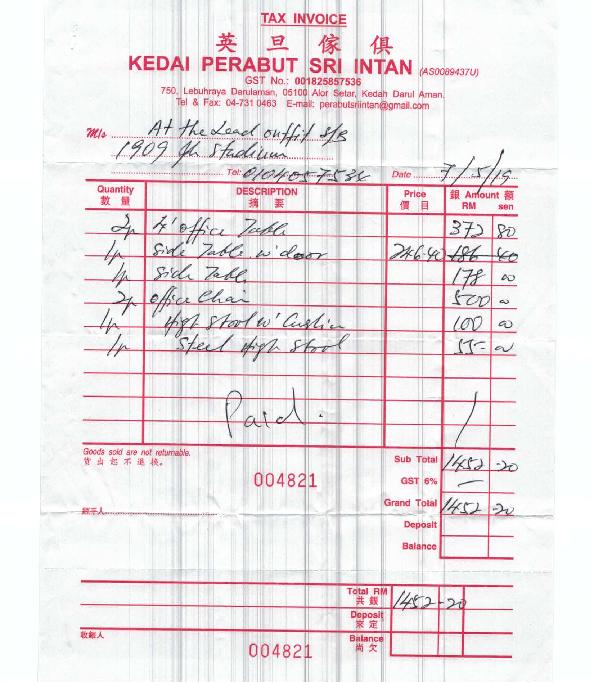 TAX INVOICE
英 旦 傢 俱
KEDAI PERABUT SRI INTAN (AS0089437U)
GST No.: 001825857536
750, Lebuhraya Darulaman, 05100 Alor Setar, Kedah Darul Aman.
Tel & Fax: 04-731 0463 E-mail: perabutsriintan@gmail.com
M/s At the Lead outfit S/B
1909 Jln Stadium
Tel: Date 7/5/19
Quantity DESCRIPTION Price 銀 Amount 額
數 量 摘 要 價 目 RM sen
2p 4' office Table 372 80
1p Side Table w' door 246.40 186 40
1p Side Table 178 00
2p office Chair 500 00
1p High Stool w' Cushion 100 00
1p Steel High Stool 55- 00
Paid.
Goods sold are not returnable. Sub Total 1452-20
貨 出 恕 不 退 換。
004821 GST 6% —
Grand Total 1452-20
經手人
Deposit
Balance
Total RM 1452-20
共 銀
Deposit
來 定
收銀人 Balance
004821 尚 欠